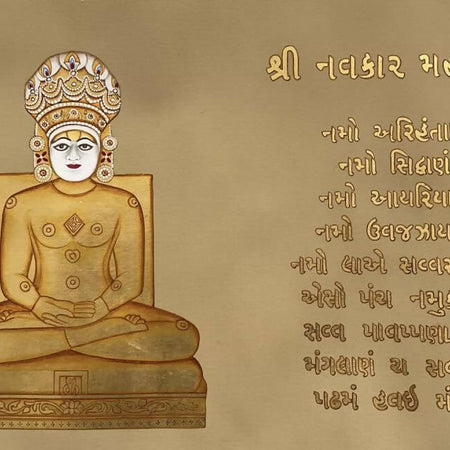 શ્રી નવકાર મ
નમો અરિહંતા
નમો સિદ્ધાણં
નમો આયરિયા
નમો ઉવજઝાય
નમો લોએ સવ્વ
એસો પંચ નમુ
સવ્વ પાવપ્પણા
મંગલાણં ચ સ
પઢમં હવઈ મં